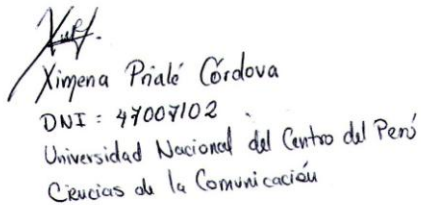 Ximena Prialé Córdova
DNI: 47007102
Universidad Nacional del Centro del Perú
Ciencias de la Comunicación